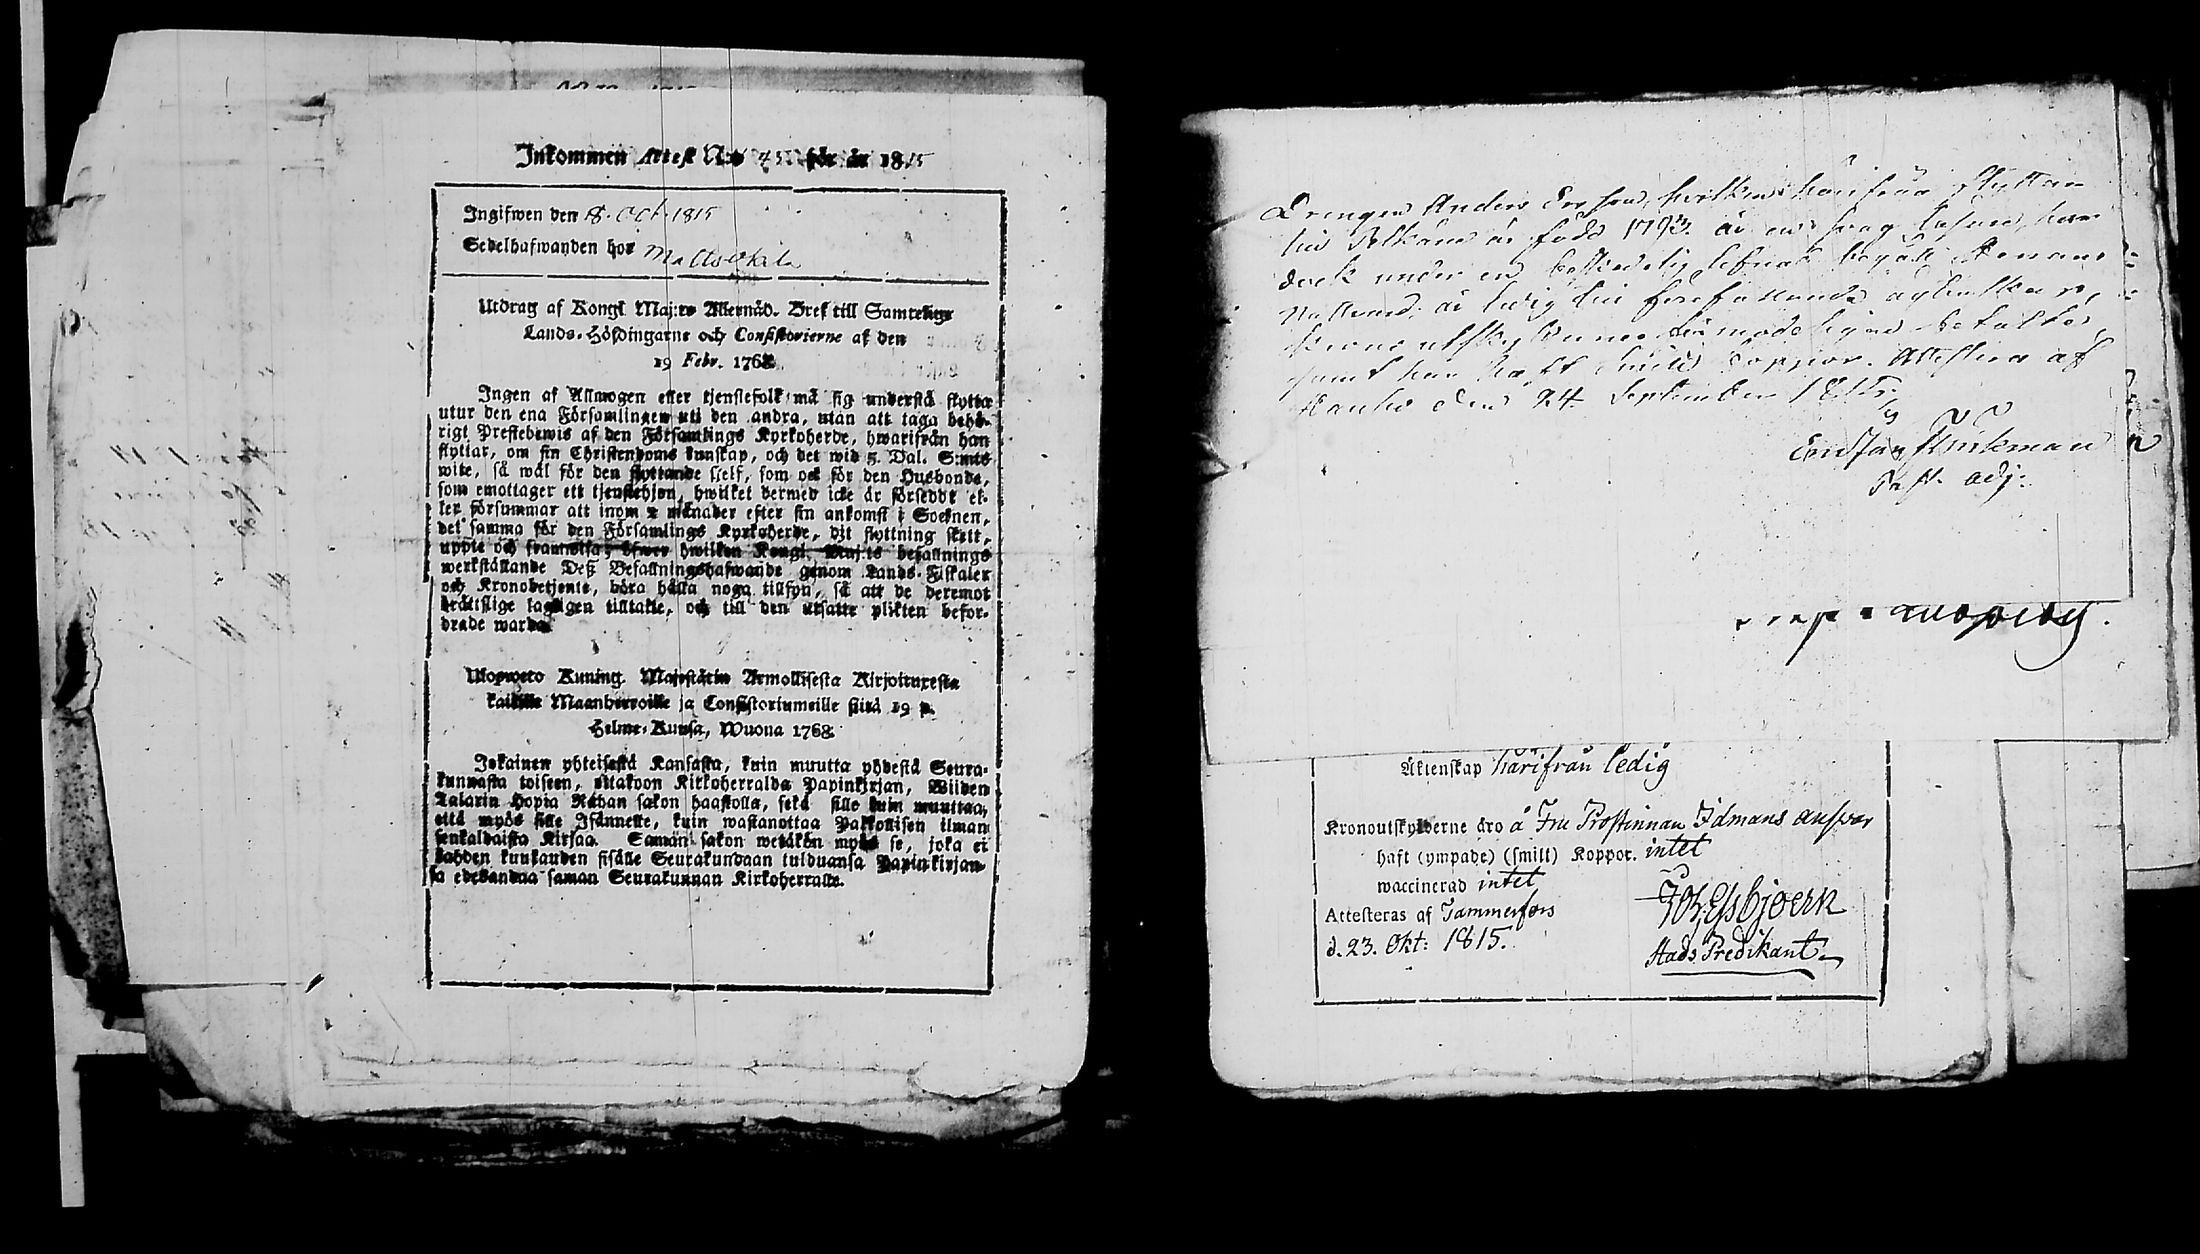 Inkommen Attest N:o 45 för år 1815
Ingifwen den 18. Oct. 1815
Sedelhafwanden hor Matts
Utdrag af Kongl. Maj:ts Allernåd. Bref till Samtelige
Lands-Höfdingarne och Consistorierne af den
19 Febr. 1768.
Ingen af Allmogen eller tjenstefolk må sig understå flytta
utur den ena Församlingen uti den andra, utan att taga behö-
rigt Prestebewis af den Församlings Kyrkoherde, hwarifrån han
flyttar, om sin Christendoms kunskap, och det wid 5. Dal. S:mts
wite, så wäl för den flyttande sielf, som ock för den Husbonde,
som emottager ett tjenstehjon, hwilket dermed icke är försedt el-
ler försummar att inom 2 månader efter sin ankomst i Socknen,
det samma för den Församlings Kyrkoherde, dit flyttning skett,
uppte och framwisa; öfwer hwilken Kongl. Maj:ts befallnings
werkställande Deß Befallningshafwande genom Lands-Fiskaler
och Kronobetjente, böra hålla noga tillsyn, så att de deremot
brättslige lagligen tilltalte, och till den utsatte plikten befor-
drade warda.
Ulosweto Kuning. Majestätin Armollisesta Kirjoituxesta
kaikille Maanherroille ja Consistoriumeille siitä 19 p.
Helme-Kuusa, Wuona 1768.
Jokainen yhteisestä Kansasta, kuin muutta yhdestä Seura-
kunnasta toiseen, ottakoon Kirkoherralda Papinkirjan, Wiiden
Talarin Hopia Rahan sakon haastolla, sekä sille kuin muuttaa,
että myös sille Isännelle, kuin wastanottaa Palkollisen ilman
senkaldaista Kirjaa. Saman sakon wetäkön myös se, joka ei
kahden kuukauden sisälle Seurakundaan tulduansa Papinkirjan-
sa edesandaa saman Seurakunnan Kirkoherralle.
Drengen Anders Ersson, hwilken härifrån flyttar
till Pelkäne är född 1793. är en swag läsare, har
dock under en beskedelig lefnad begått Herrans
Nattvard; är ledig till förefallande ägtenskap,
Kronoutskylderne
samt han haft Koppor. Attesteras af
Hauho den 24 September 1815.
Past. Adj:
Äktenskap härifrån ledig
Kronoutskylderne äro å Fru Prostinnan Idmans answar
haft (ympade) (smitt) Koppor. intet
waccinerad intet
Attesteras af Tammerfors
d. 23. Okt: 1815.
Joh. Essbjoerk
Stads Predikant.